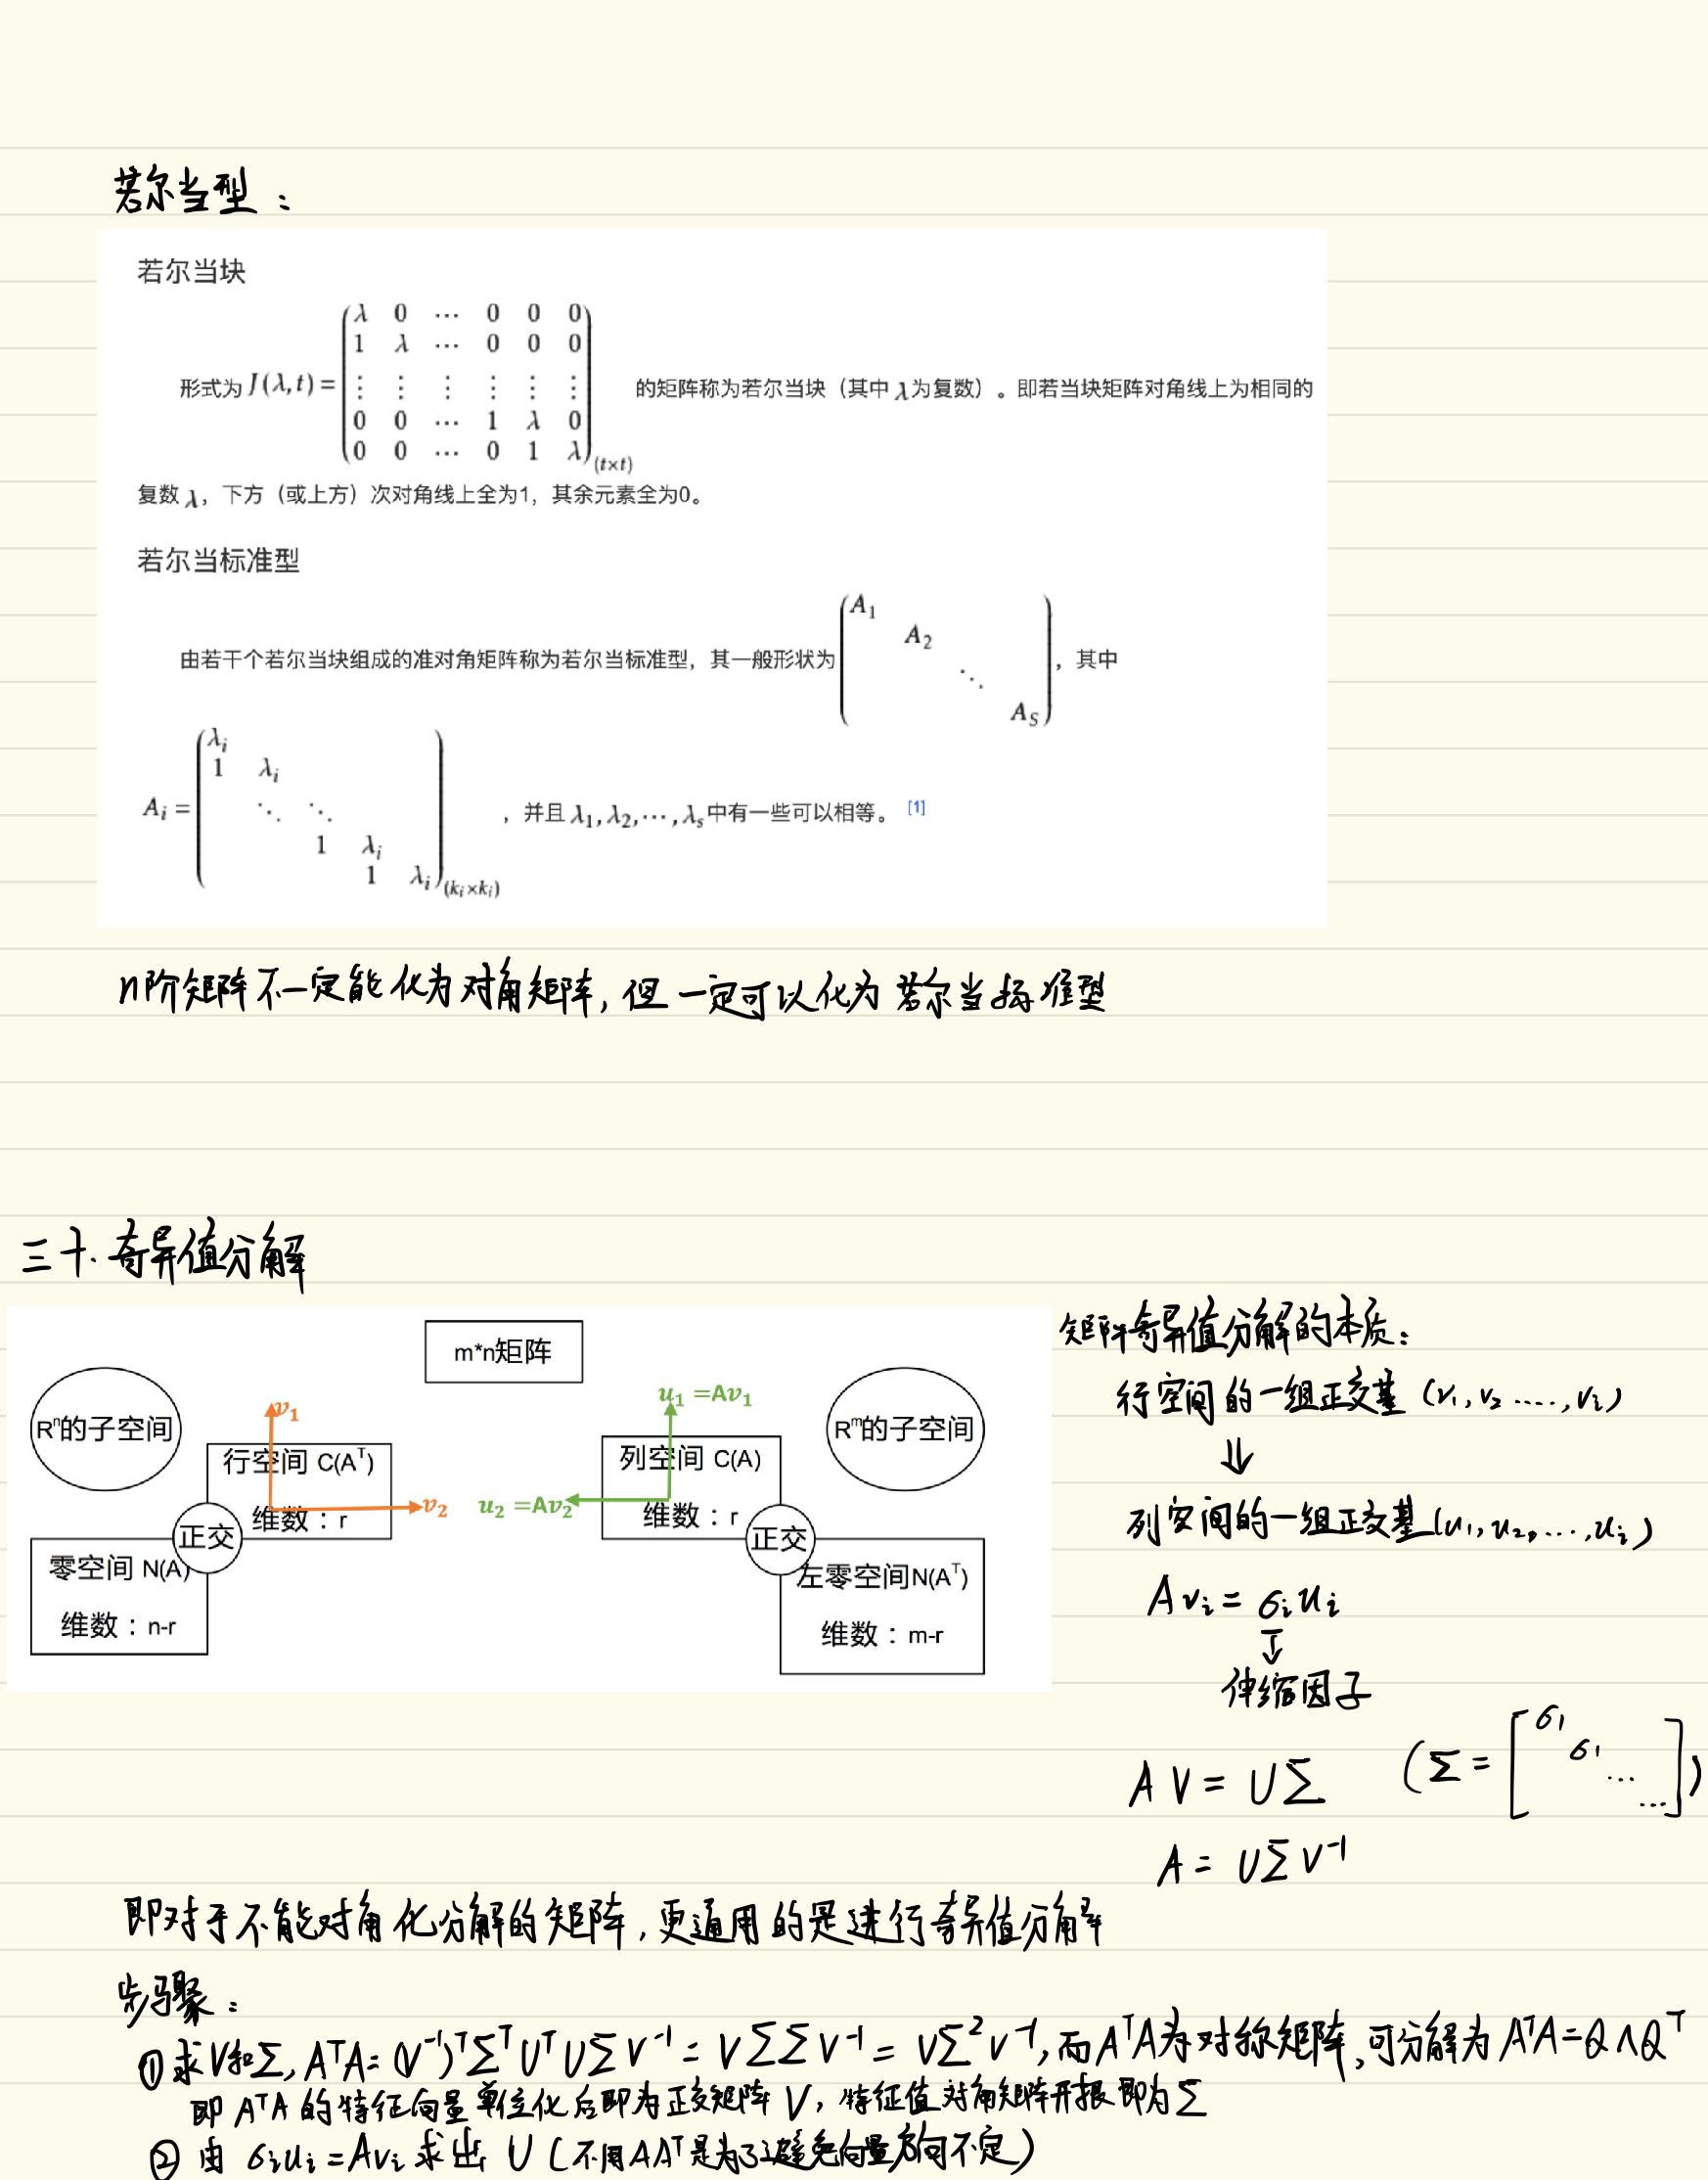 若尔当型：
若尔当块
形式为 J(λ,t) = (λ 0 ⋯ 0 0 0
1 λ ⋯ 0 0 0
⋮ ⋮ ⋮ ⋮ ⋮ ⋮
0 0 ⋯ 1 λ 0
0 0 ⋯ 0 1 λ)(t×t) 的矩阵称为若尔当块（其中 λ 为复数）。即若当块矩阵对角线上为相同的
复数 λ，下方（或上方）次对角线上全为1，其余元素全为0。
若尔当标准型
由若干个若尔当块组成的准对角矩阵称为若尔当标准型，其一般形状为 (A₁
A₂
⋱
A_S)，其中
A_i = (λ_i
1 λ_i
⋱ ⋱
1 λ_i
1 λ_i)(k_i×k_i)，并且 λ₁, λ₂, ⋯, λ_s 中有一些可以相等。 [1]
n阶矩阵不一定能化为对角矩阵, 但一定可以化为若尔当标准型
三十. 奇异值分解
m*n矩阵
Rⁿ的子空间
v₁
行空间 C(Aᵀ)
维数：r
v₂
正交
零空间 N(A)
维数：n-r
u₁ =Av₁
列空间 C(A)
维数：r
u₂ =Av₂
Rᵐ的子空间
正交
左零空间N(Aᵀ)
维数：m-r
矩阵奇异值分解的本质：
行空间的一组正交基 (v₁, v₂ ...., v_i)
⇓
列空间的一组正交基 (u₁, u₂, ..., u_i)
Av_i = σ_i u_i
↓
伸缩因子
AV = UΣ (Σ = [σ₁
σ₁
...
...])
A = UΣV⁻¹
即对于不能对角化分解的矩阵, 更通用的是进行奇异值分解
步骤：
① 求V和Σ, AᵀA = (V⁻¹)ᵀΣᵀUᵀUΣV⁻¹ = VΣΣV⁻¹ = VΣ²V⁻¹, 而AᵀA为对称矩阵, 可分解为AᵀA = QΛQᵀ
即 AᵀA 的特征向量单位化后即为正交矩阵 V, 特征值对角矩阵开根即为Σ
② 由 σ_i u_i = Av_i 求出 U (不用AAᵀ是为了避免向量方向不定)